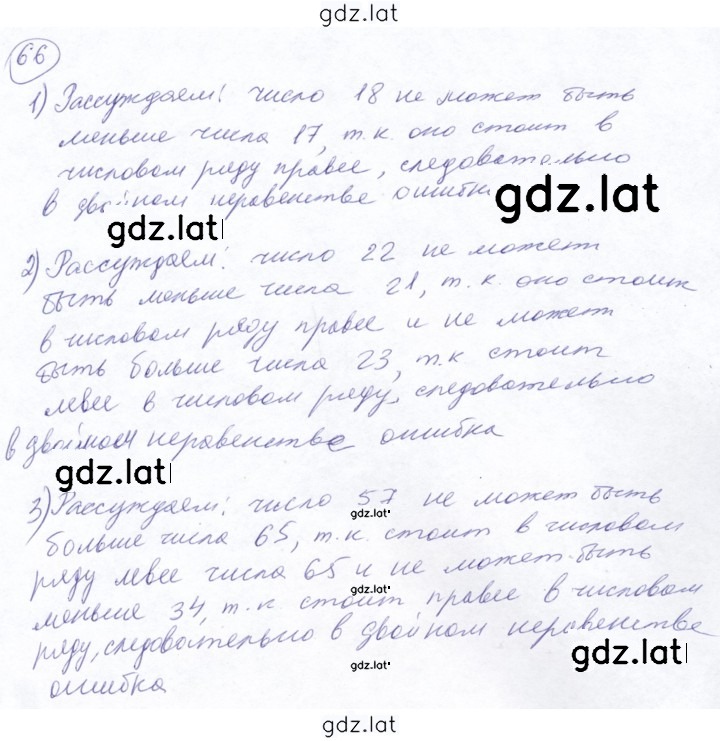 gdz.lat
66
1) Рассуждаем: число 18 не может быть
меньше числа 17, т.к. оно стоит в
числовом ряду правее, следовательно
в двойном неравенстве ошибка
gdz.lat
gdz.lat
2) Рассуждаем: число 22 не может
быть меньше числа 21, т.к. оно стоит
в числовом ряду правее и не может
быть больше числа 23, т.к стоит
левее в числовом ряду, следовательно
в двойном неравенстве ошибка
gdz.lat
3) Рассуждаем: число 57 не может быть
gdz.lat
больше числа 65, т.к. стоит в числовом
ряду левее числа 65 и не может быть
gdz.lat
меньше 34, т.к стоит правее в числовом
ряду, следовательно в двойном неравенстве
gdz.lat
gdz.lat
ошибка
gdz.lat